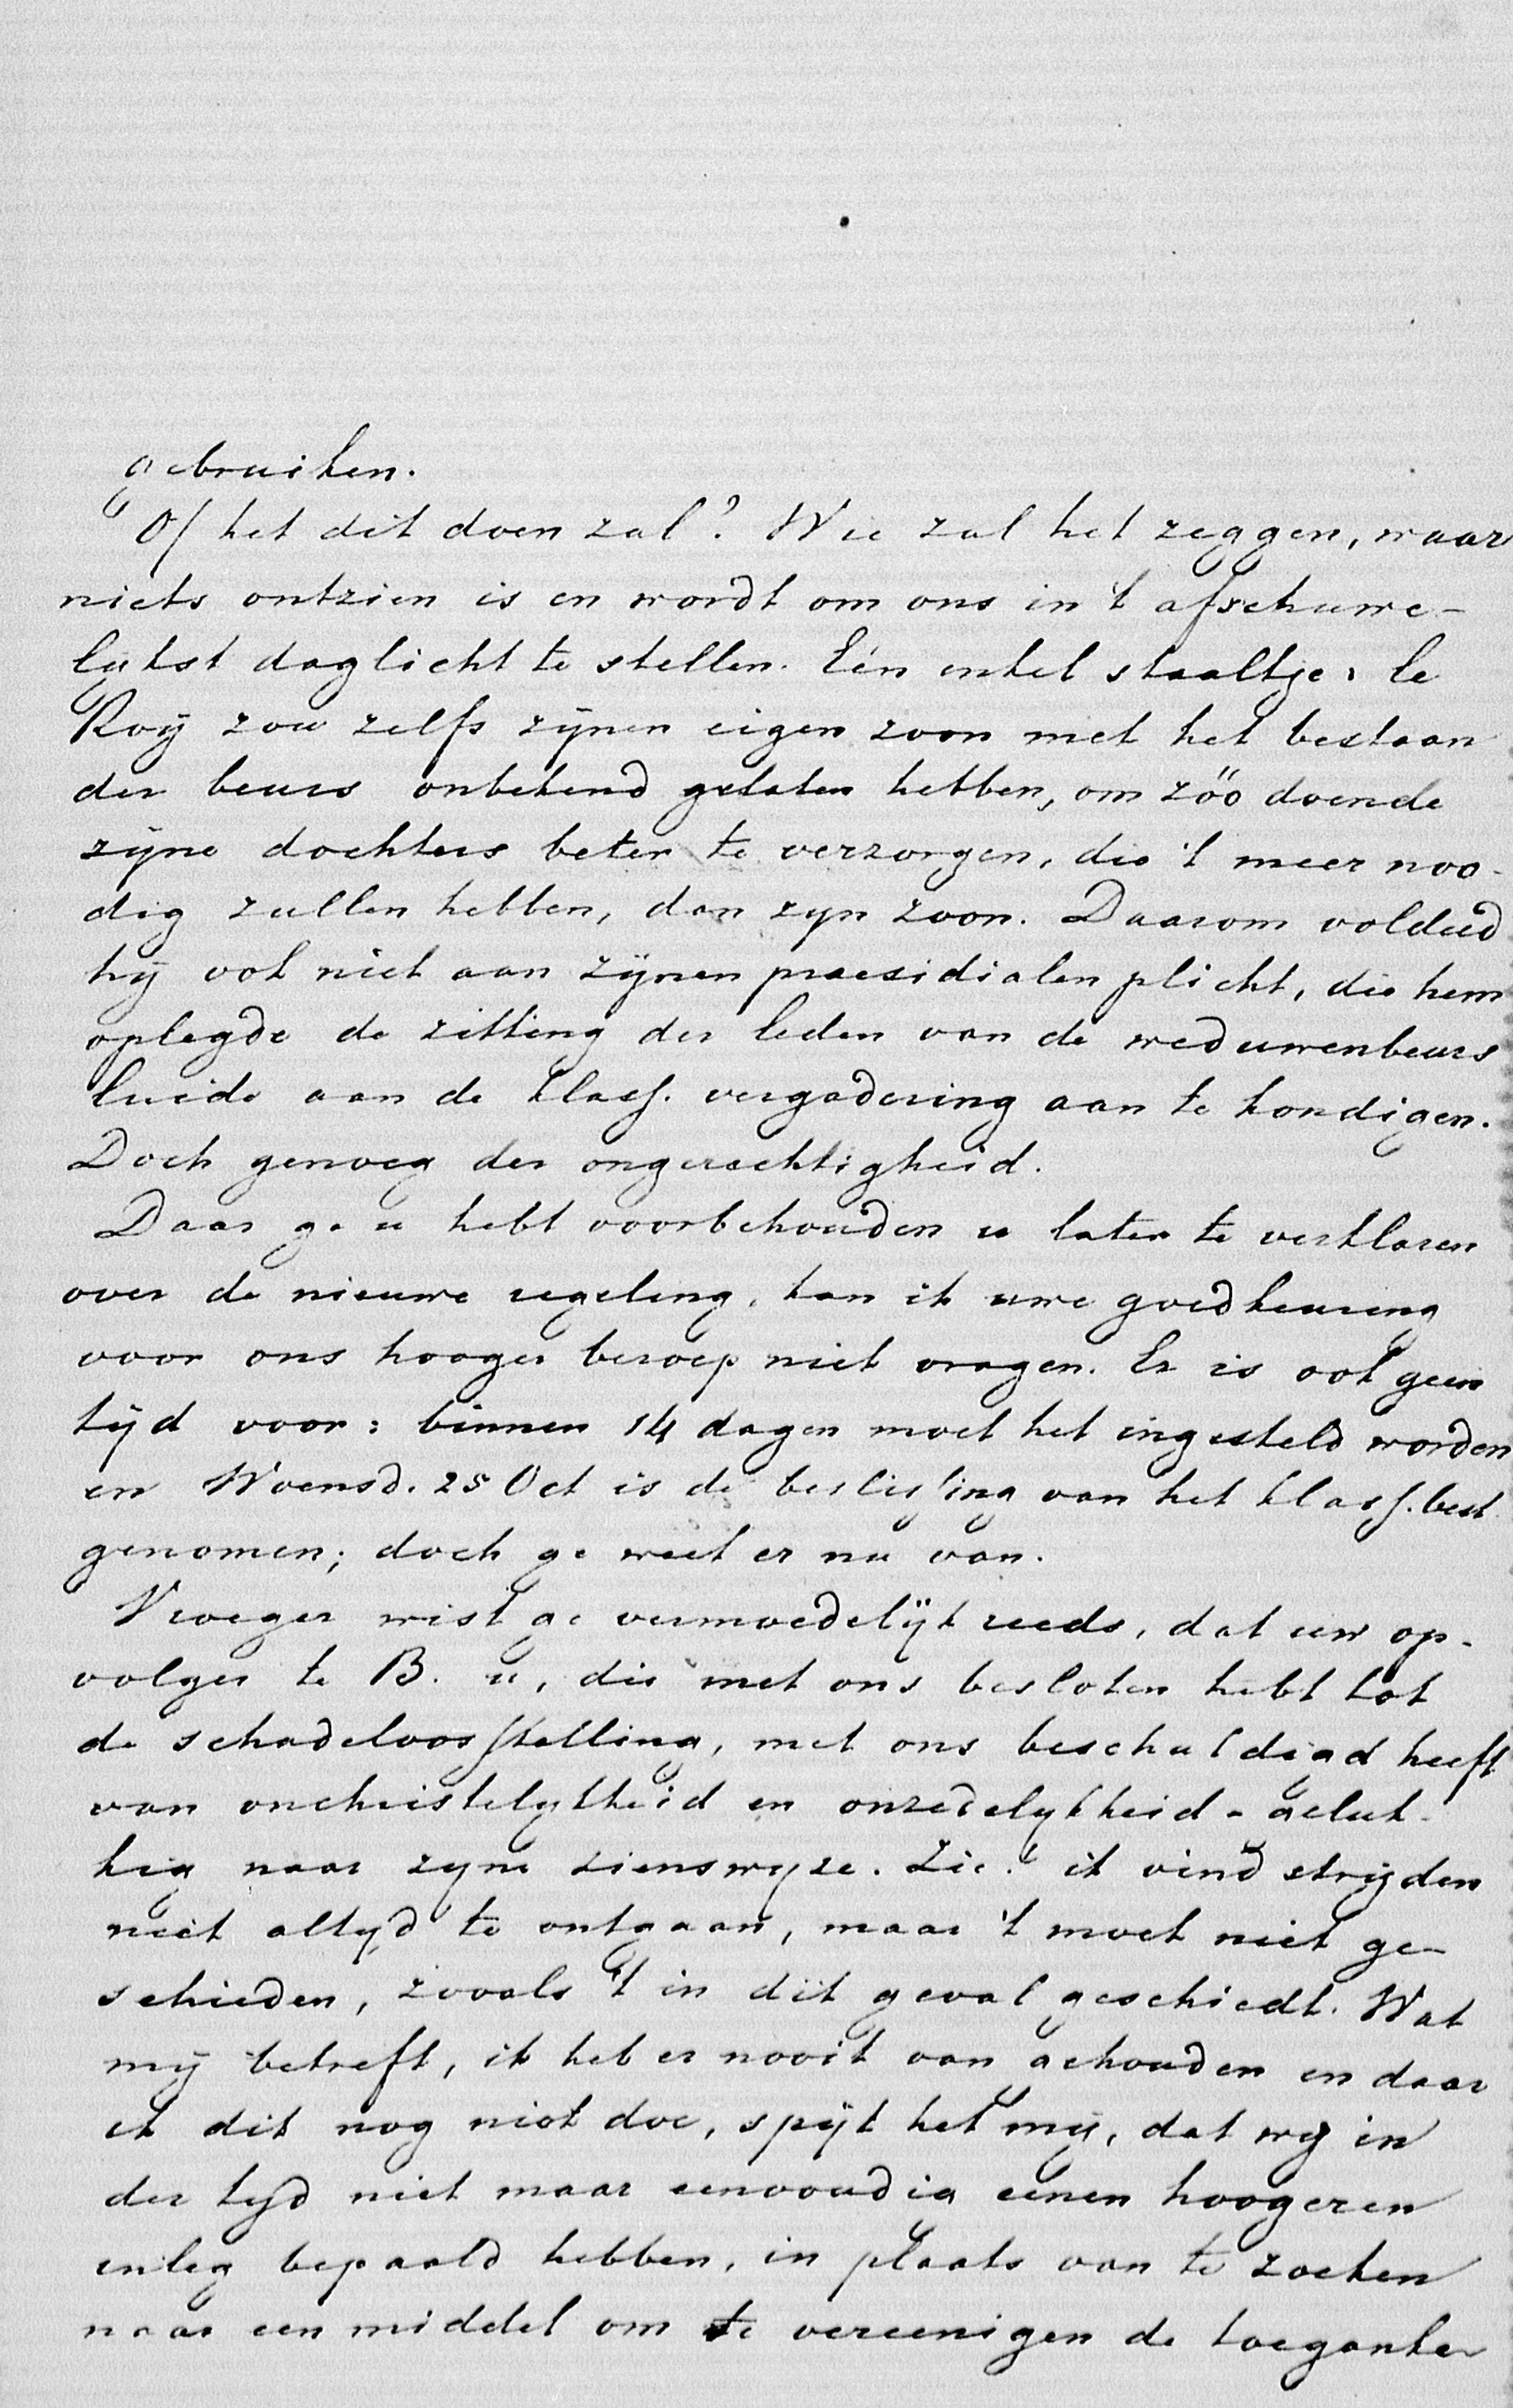 gebruiken.
Of het dit doen zal? Wie zal het zeggen, waar
niets ontzien is en wordt om ons in 't afschuwe-
lykst daglicht te stellen. Eén enkel staaltje: le
Roij zou zelfs zijnen eigen zoon met het bestaan
der beurs onbekend gelaten hebben, om zóó doende
zijne dochters beter te verzorgen, die 't meer noo-
dig zullen hebben, dan zyn zoon. Daarom voldeed
hij ook niet aan zijnen praesidialen plicht, die hem
oplegde de zitting der leden van de weduwenbeurs
luide aan de klass. vergadering aan te kondigen.
Doch genoeg der ongerechtigheid.
Daar ge u hebt voorbehouden u later te verklaren
over de nieuwe regeling, kan ik uwe goedkeuring
voor ons hooger beroep niet vragen. Er is ook geen
tijd voor: binnen 14 dagen moet het ingesteld worden
en Woensd. 25 Oct is de beslissing van het klass. best.
genomen; doch ge weet er nu van.
Vroeger wist ge vermoedelijk reeds, dat uw op-
volger te B. u, die met ons besloten hebt tot
de schadeloosstelling, met ons beschuldigd heeft
van onchristelykheid en onzedelykheid - geluk-
kig naar zyne zienswyze. Zie! ik vind strijden
niet altyd te ontgaan, maar 't moet niet ge-
schieden, zooals 't in dit geval geschiedt. Wat
mij betreft, ik heb er nooit van gehouden en daar
ik dit nog niet doe, spijt het mij, dat wij in
der tyd niet maar eenvoudig eenen hoogeren
inleg bepaald hebben, in plaats van te zoeken
naar een middel om te vereenigen de toeganke